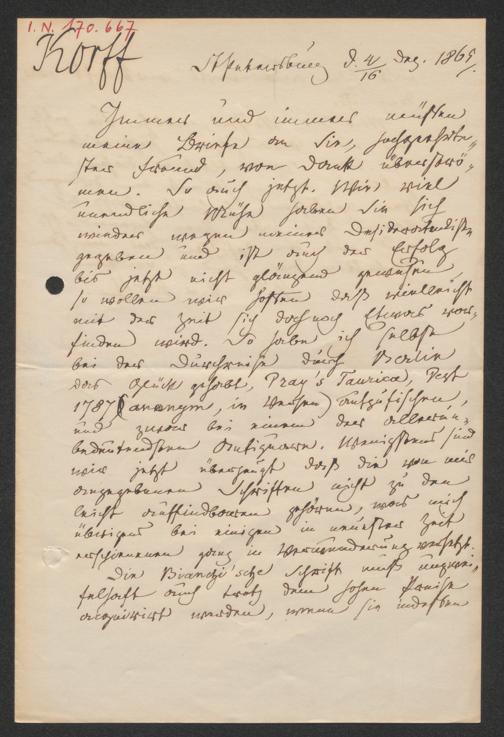 I.N. 170.667
Korff
St Petersburg d. 4/16 Dez. 1869.
Immer und immer müssen
meine Briefe an Sie, hochgeehrte-
ster Freund, von Dank überströ-
men. So auch jetzt. Wie viel
unendliche Mühe haben Sie sich
wieder wegen meiner Desideratenliste
gegeben und ist auch der Erfolg
bis jetzt nicht glänzend gewesen,
so wollen wir hoffen daß vielleicht
mit der Zeit sich doch noch Etwas vor-
finden wird. So habe ich selbst
bei der Durchreise durch Berlin
das Glück gehabt, Pray's Taurica, Pest
1787 (anonym, in Versen) aufzufischen,
und zwar bei einem der allerun-
bedeutendsten Antiquare. Wenigstens sind
wir jetzt überzeugt daß die von mir
angegebenen Schriften nicht zu den
leicht auffindbaren gehören, was mich
übrigens bei einigen in neuester Zeit
erschienenen ganz in Verwunderung versetzt.
Die Bianchi'sche Schrift muß unzwei-
felhaft auch trotz dem hohen Preise
acquirirt werden, wenn sie indessen